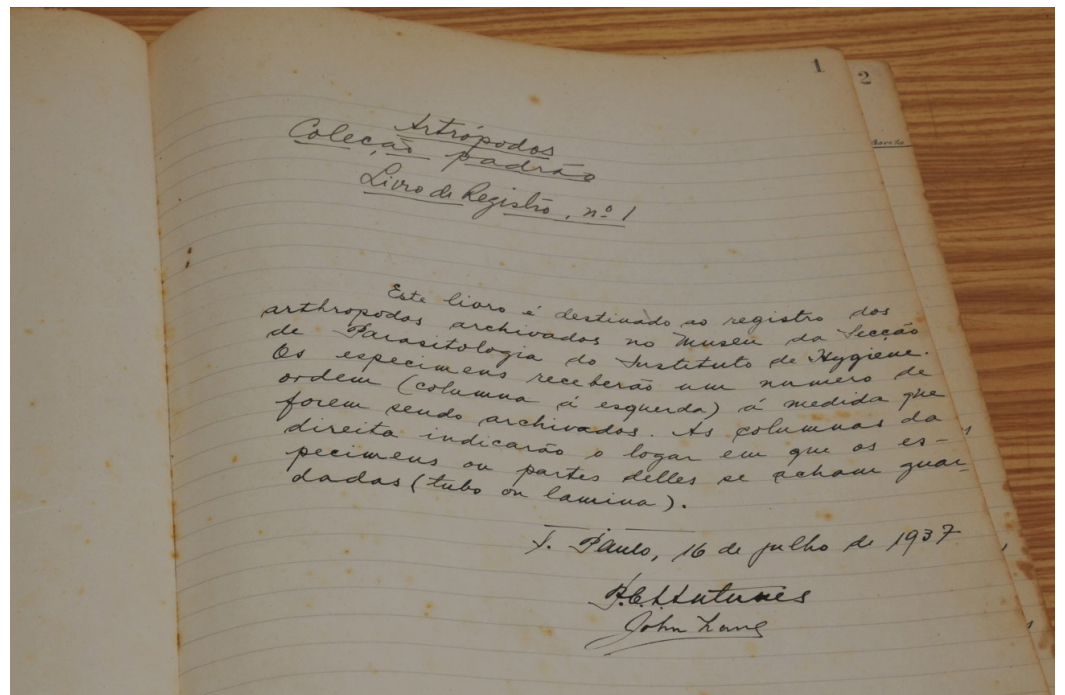 1
2
Artrópodos
Coleção padrão
Livro de Registro, nº 1
Este livro é destinado ao registro dos
arthropodos archivados no Museu da Secção
de Parasitologia do Instituto de Hygiene.
Os especimens receberão um numero de
ordem (columna á esquerda) á medida que
forem sendo archivados. As columnas da
direita indicarão o logar em que os es-
pecimens ou partes delles se acham guar-
dadas (tubo ou lamina).
S. Paulo, 16 de julho de 1937
P.C.A. Antunes
John Lane